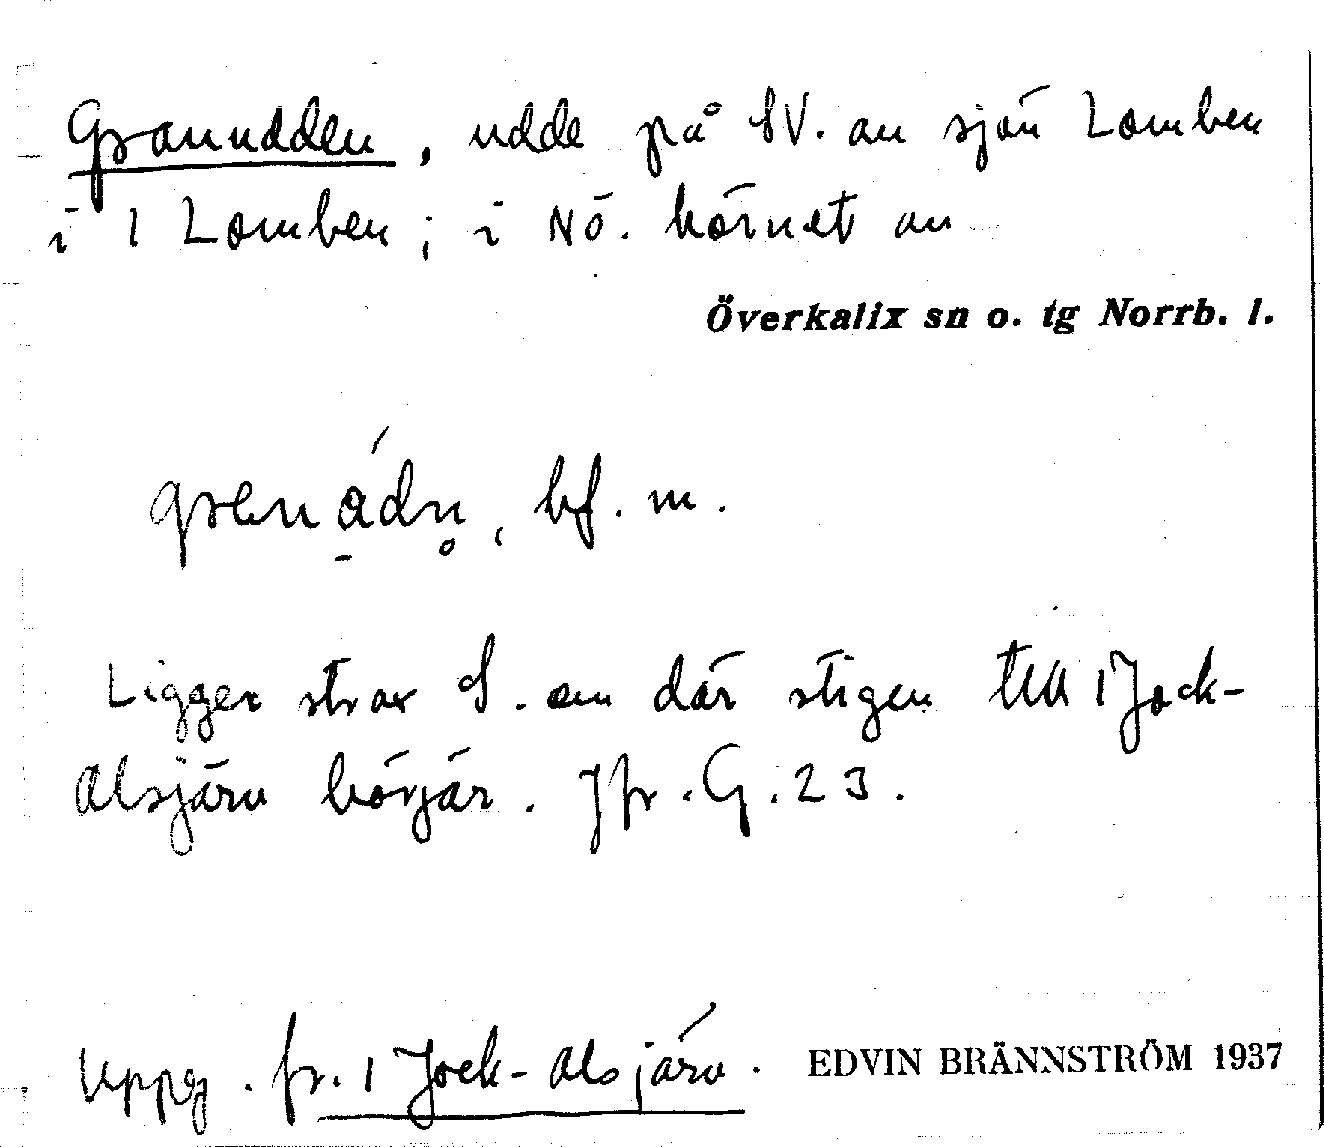 Granudden, udde på SV. av sjön Lomben
i 1 Lomben; i NÖ. hörnet av
Överkalix sn o. tg Norrb. l.
grenådn, bf. m.
Ligger strax S. om där stigen till 1 Jock-
Alsjärv börjar. Jfr. G. 23.
Uppg. fr. 1 Jock-Alsjärv. EDVIN BRÄNNSTRÖM 1937